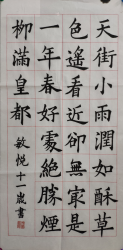 天街小雨潤如酥草
色遙看近卻無寂是
一年春好處絕勝煙
柳滿皇都
敏悅十一歲書